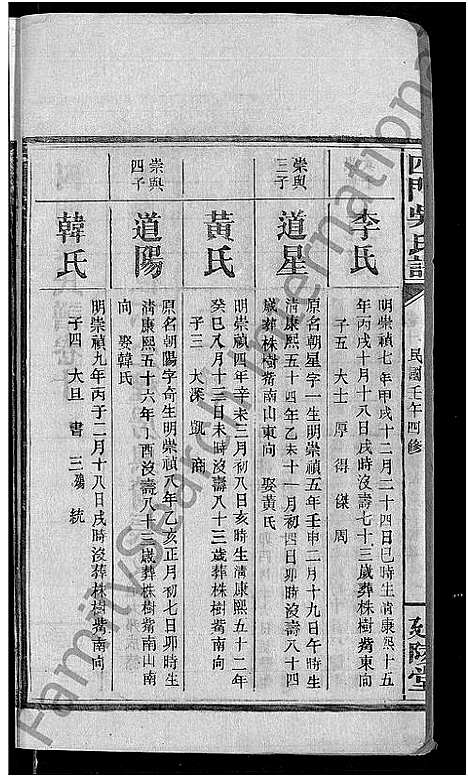 四門吳氏譜
民國壬午四修
延陵堂
李氏
明崇禎七年甲戌十二月二十四日巳時生清康熙十五
年丙戌十月十八日戌時沒壽七十三歲葬株樹觜東向
子五 大士 厚 得 傑 周
崇與
三子
道星
原名朝星字一生明崇禎五年壬申二月十九日午時生
清康熙五十四年乙未十一月初四日卯時沒壽八十四
歲葬株樹觜南山東向 娶黃氏
黃氏
明崇禎四年辛未三月初八日亥時生清康熙五十二年
癸巳八月十三日未時沒壽八十三歲葬株樹觜南向
子三 大深 凱 商
崇與
四子
道陽
原名朝陽字奇生明崇禎八年乙亥正月初七日卯時生
清康熙五十六年丁酉沒壽八十三歲葬株樹觜南山南
向 娶韓氏
韓氏
明崇禎九年丙子二月十八日戌時沒葬株樹觜南向
子四 大旦 書 三 統
FamilySearch International